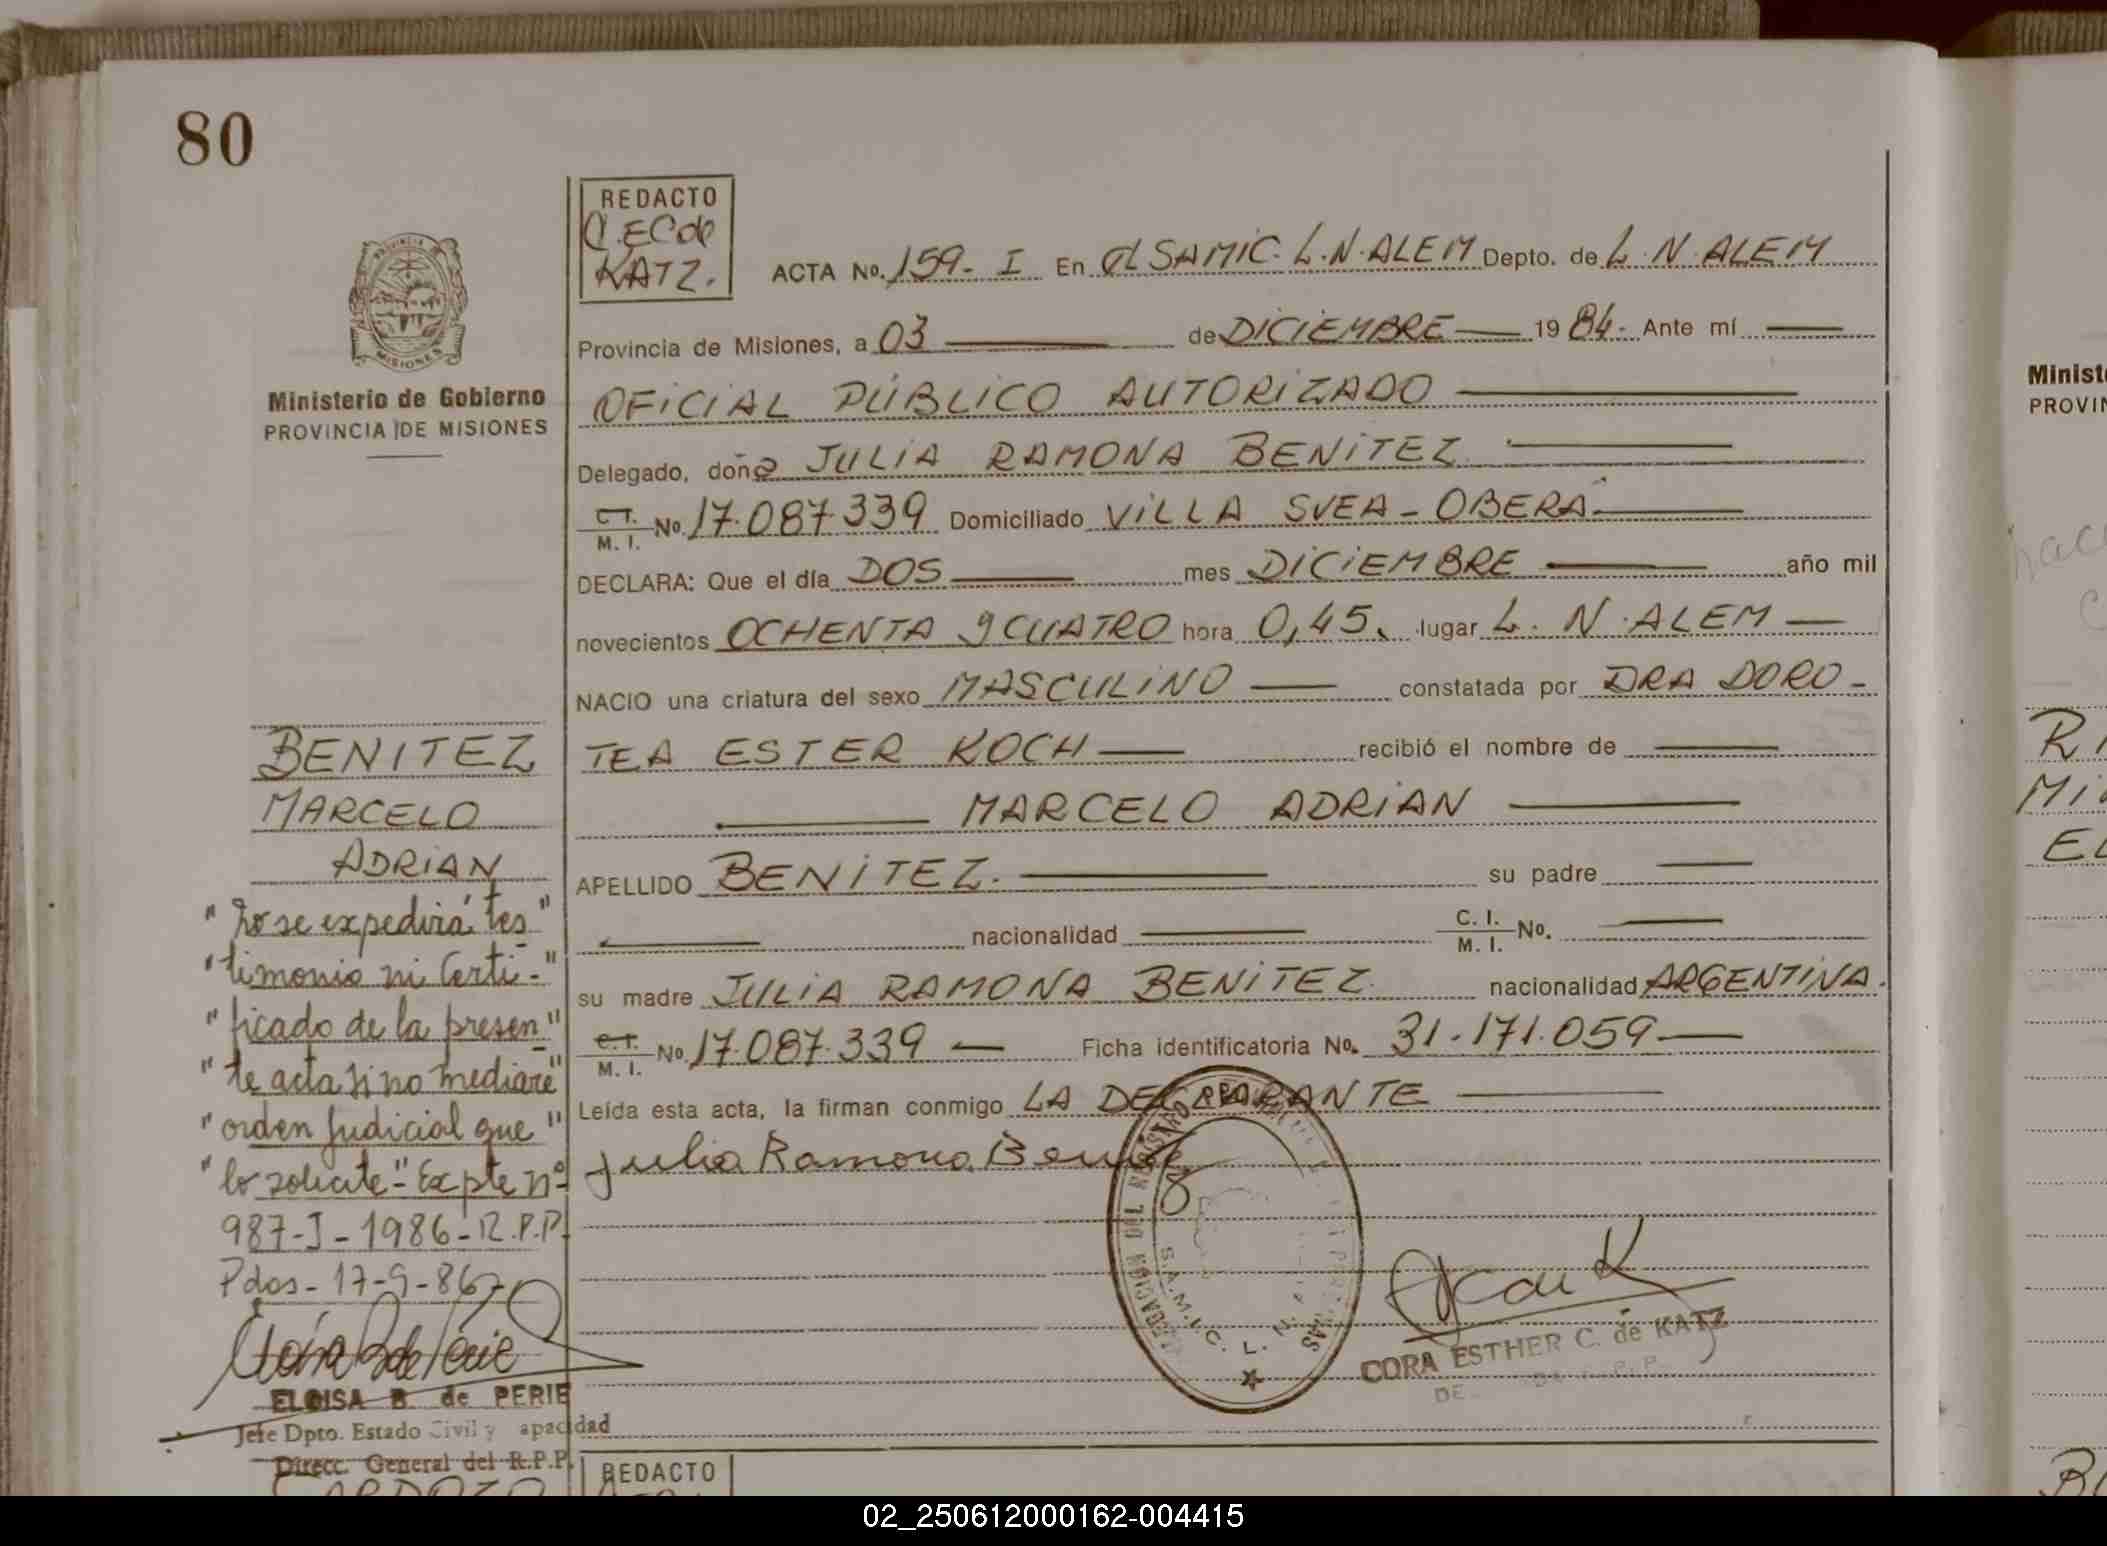 80
REDACTO
C.EC de
KATZ.
ACTA No. 159- I En el SAMIC. L.N.ALEM Depto. de L.N.ALEM
Provincia de Misiones, a 03 de DICIEMBRE 1984. Ante mí
OFICIAL PÚBLICO AUTORIZADO
Delegado, doña JULIA RAMONA BENITEZ
C.I. M. I. No. 17.087.339 Domiciliado VILLA SVEA - OBERÁ
DECLARA: Que el día DOS mes DICIEMBRE año mil
novecientos OCHENTA y CUATRO hora 0,45. lugar L. N. ALEM
NACIO una criatura del sexo MASCULINO constatada por DRA DORO-
TEA ESTER KOCH recibió el nombre de
MARCELO ADRIAN
APELLIDO BENITEZ. su padre
nacionalidad C. I. M. I. No.
su madre JULIA RAMONA BENITEZ. nacionalidad ARGENTINA.
C.I. M. I. No. 17.087.339 Ficha identificatoria No. 31.171.059
Leída esta acta, la firman conmigo LA DECLARANTE
Julia Ramona Benitez
S.A.M.I.C. L. N.
CORA ESTHER C. de KATZ
PROVINCIA
MISIONES
Ministerio de Gobierno
PROVINCIA DE MISIONES
BENITEZ
MARCELO
ADRIAN
"No se expedirá tes"
"timonio ni Certi-"
"ficado de la presen"
"te acta si no mediare"
"orden Judicial que"
"lo solicite"- Expte nº
987-J-1986-R.P.P.
Pdas- 17-9-86-
ELOISA B. de PERIE
Jefe Dpto. Estado Civil y apacidad
Direcc. General del R.P.P.
REDACTO
Minist
PROVIN
02_250612000162-004415